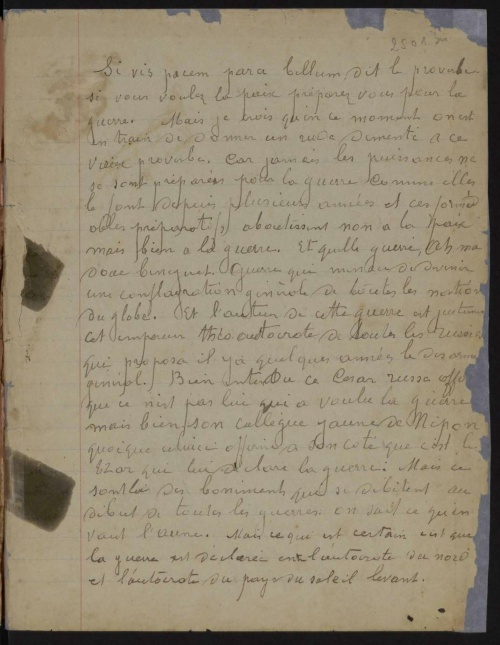 Si vis pacem para bellum dit le proverbe
si vous voulez la paix préparez vous pour la
guerre. Mais je crois qu'en ce moment on est
en train de donner un rude démenti a ce
vieux proverbe. Car jamais les puissances ne
se sont préparées pour la guerre comme elles
le font depuis plusieurs années et ces formid
ables préparatifs aboutissent non a la paix
mais bien a la guerre. Et quelle guerre, Ah ma
doue beniguet. Guerre qui menace de devenir
une conflagration générale de toutes les nations
du globe. Et l'auteur de cette guerre est justement
cet empereur théo autocrate de toutes les Russies
qui proposa il y a quelques années le désarme
général. Bien entendu ce Cesar russe affir
que ce n'est pas lui qui a voulu la guerre
mais bien son collègue jaune de Nipon
quoique celui ci affirme a son coté que c'est le
Czar qui lui declare la guerre. Mais ce
sont la des boniments qui se débitent au
début de toutes les guerres on sait ce qu'en
vaut l'aune. Mais ce qui est certain c'est que
la guerre est déclarée entre l'autocrate du nord
et l'autocrate du pays du soleil levant.